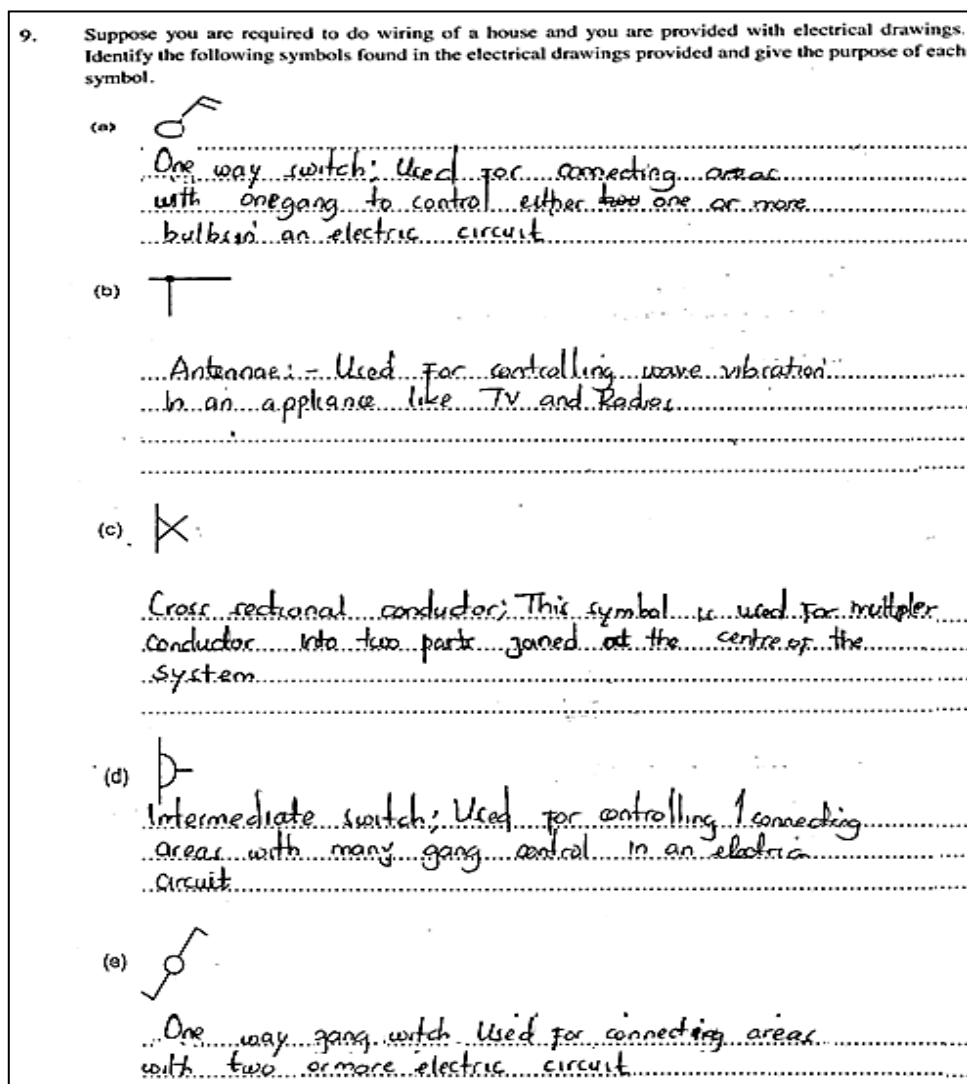 9. Suppose you are required to do wiring of a house and you are provided with electrical drawings.
Identify the following symbols found in the electrical drawings provided and give the purpose of each
symbol.
(a)
One way switch; Used for connecting areas
with onegang to control either two one or more
bulbs in an electric circuit
(b)
Antennae: - Used For controlling wave vibration
In an appliance like TV and Radios
(c)
Cross sectional conductor; This symbol is used For multipler
conductor into two parts joined at the centre of the
system
(d)
Intermediate switch; Used for controlling / connecting
areas with many gang control in an electric
circuit
(e)
One way gang switch Used for connecting areas
with two ormore electric circuit